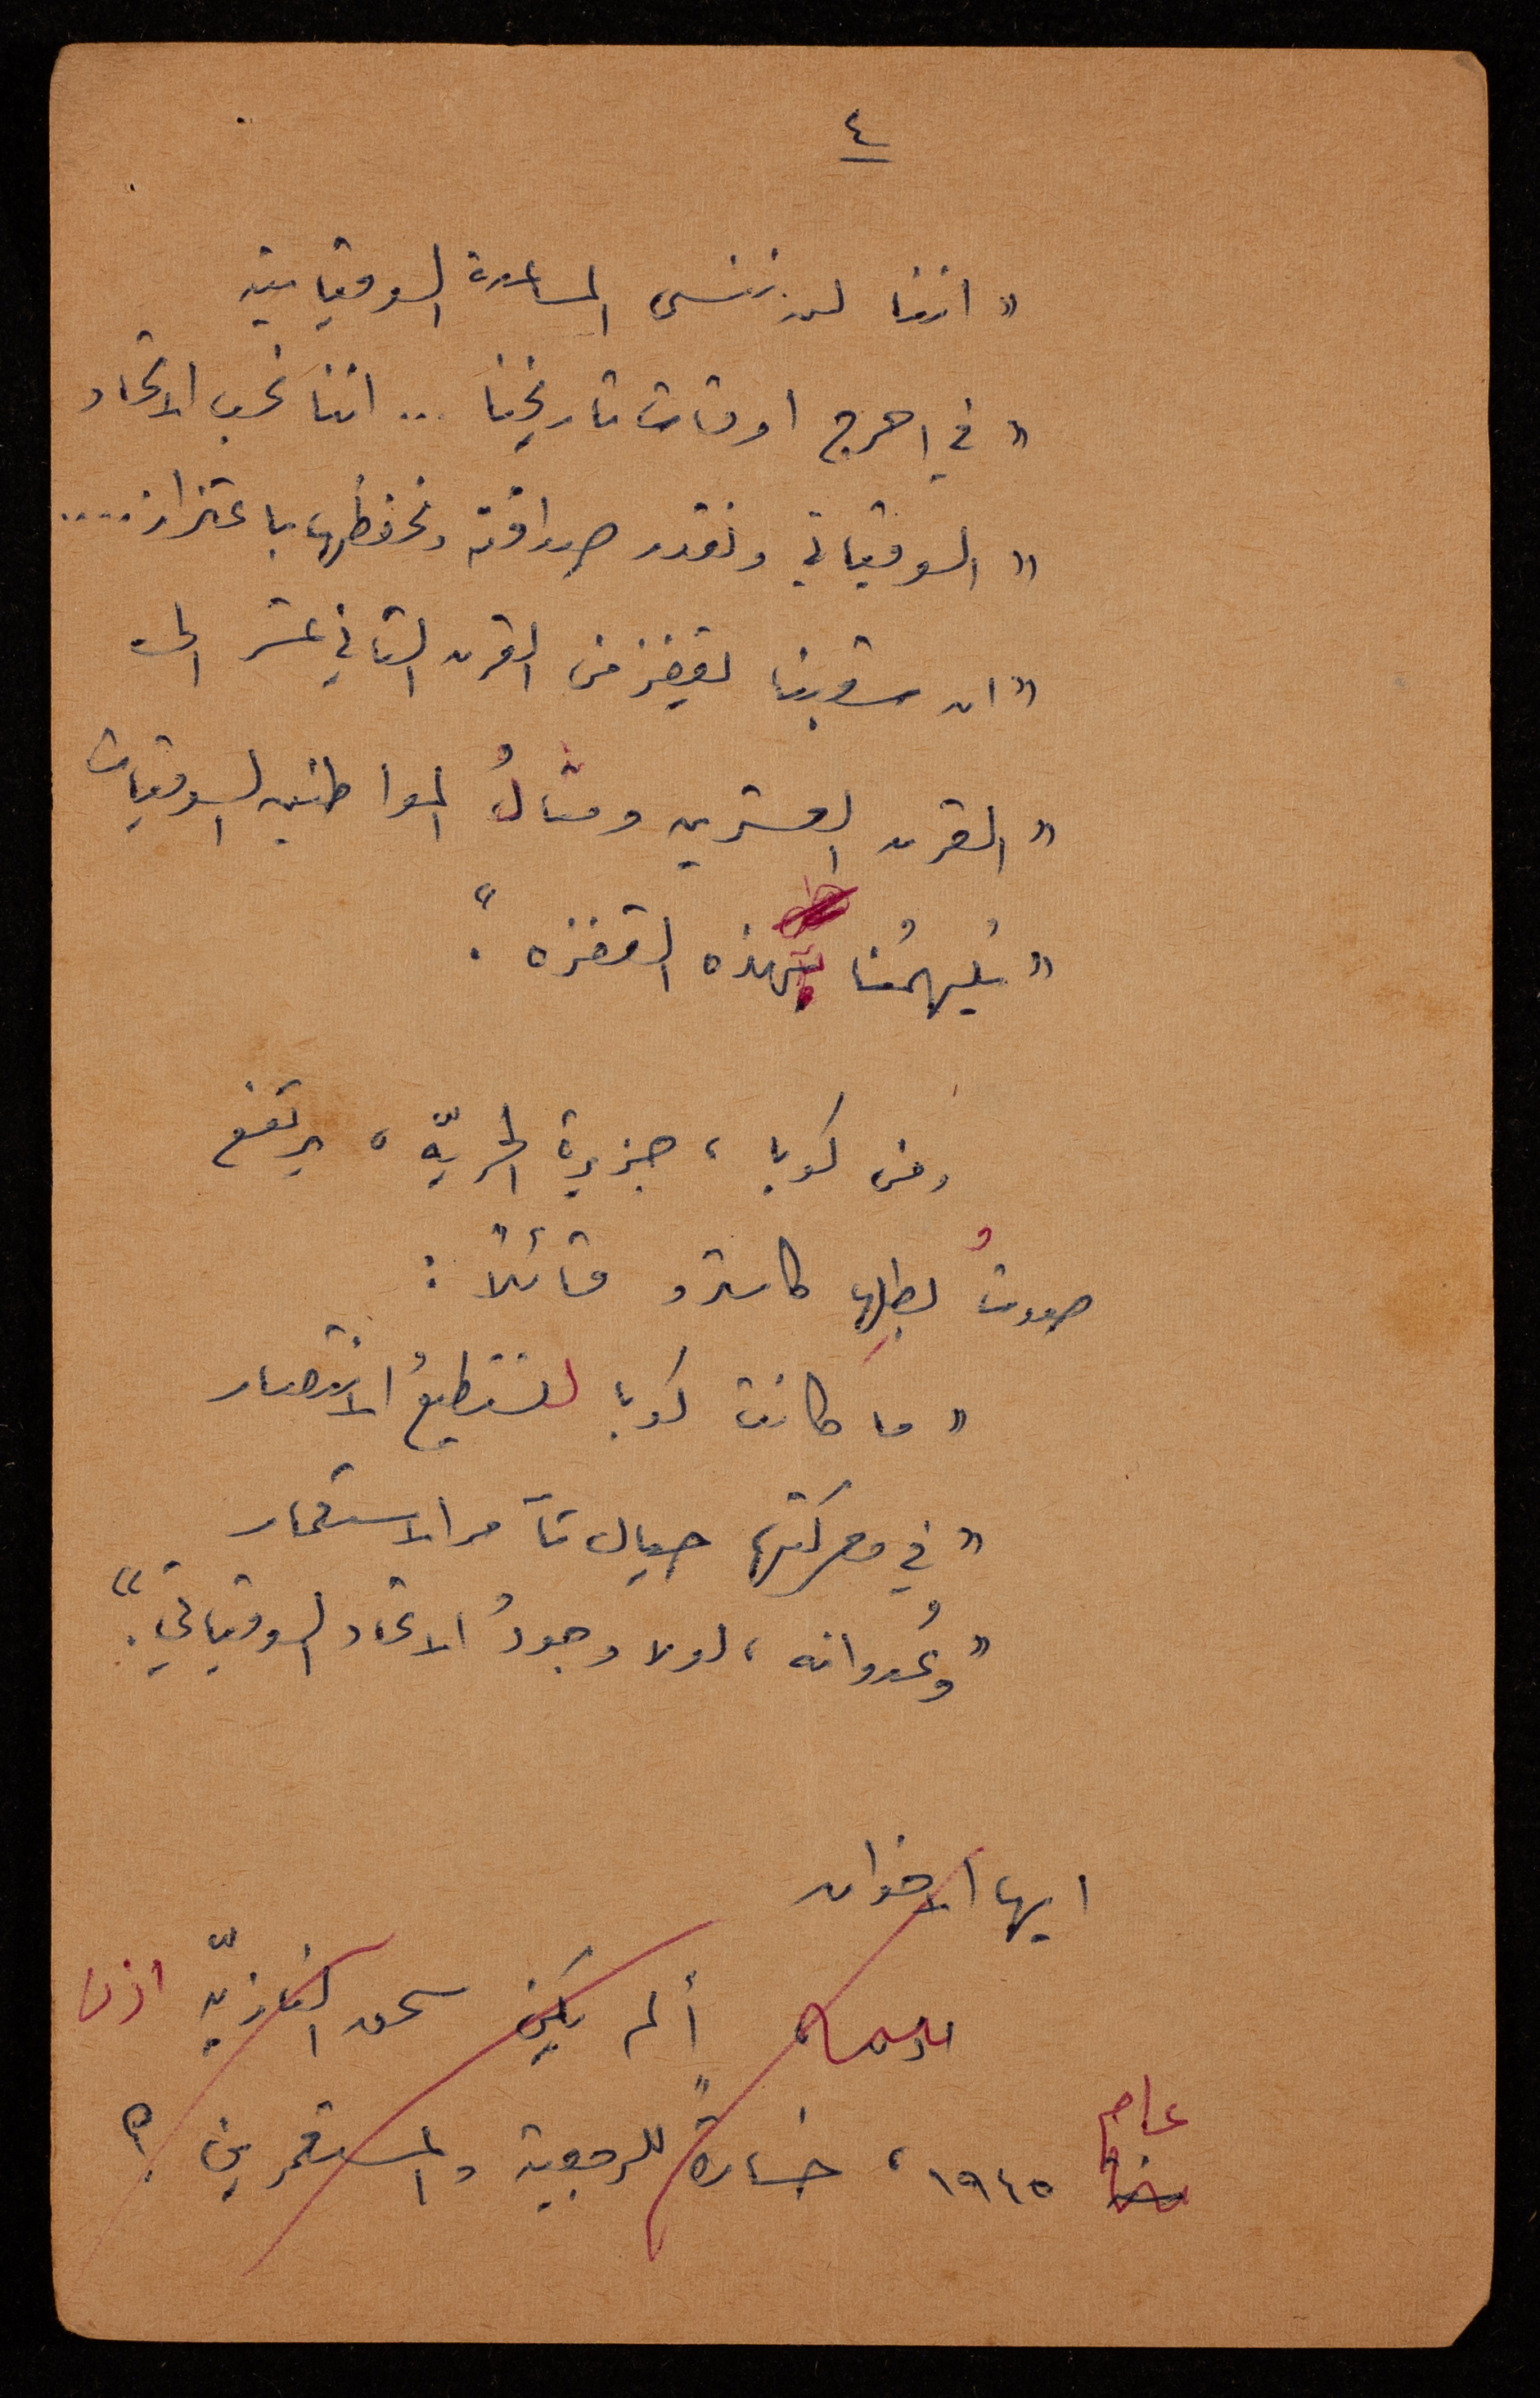 ٤
« اننا لن ننسى المساعدة السوفياتية
« في احرج اوقات تاريخنا ... اننا نحب الاتحاد
« السوفياتي ونقدر صداقته ونحفظها باعتزاز....
« ان شعبنا يقفز من القرن الثاني عشر الى
« القرن العشرين ومثالُ المواطنين السوفيات
« يُلهمُنا بهذه القفزه ".
ومن كوبا ، جزيرة الحريّه ، يرتفع
صوتُ بطلِها كاسترو قائلاً :
« ما كانت كوبا لتستطيعُ الانتصار
« في معركتها حيال تآمر الاستعمار
« وعُدوانه ، لولا وجودُ الاتحاد السوفياتي ".
ايها الاخوان
ألم يكن سحق النازيّه اذن
عام
١٩٤٥ ، خسارةً للرجعية والمستعمرين ؟